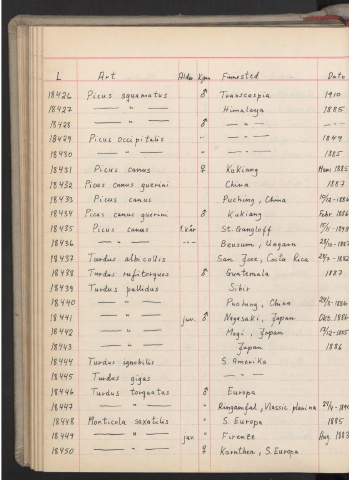 L Art Alder Kjøn Funnsted Date
18426 Picus squamatus ♂ Transcaspia 1910
18427 — " — Himalaya 1885
18428 — " — ♂ — " — " —
18429 Picus occipitalis " — " — 1849
18430 — " — " — " — 1885
18431 Picus canus ♀ Kukiang Mars 1885
18432 Picus canus guerini China 1887
18433 Picus canus Puching, China
18434 Picus canus guerini ♂ Kukiang Febr. 1886
18435 Picus canus 1. vår St. Gangloff
18436 — " — — " — Beusum, Ungarn
18437 Turdus albicollis San Jose, Costa Rica
18438 Turdus rufitorques ♂ Guatemala 1887
18439 Turdus pallidus Sibir
18440 — " — Puching, China
18441 — " — juv. ♂ Nagasaki, Japan Okt. 1884
18442 — " — " Mogi, Japan
18443 — " — Japan 1886
18444 Turdus ignobilis S. Amerika
18445 Turdus gigas — " —
18446 Turdus torquatus ♂ Europa
18447 — " — " Vlassic planina
18448 Monticola saxatilis " S. Europa 1885
18449 — " — jav. " Firenze Aug. 1883
18450 — " — ♀ Kärnthen, S. Europa